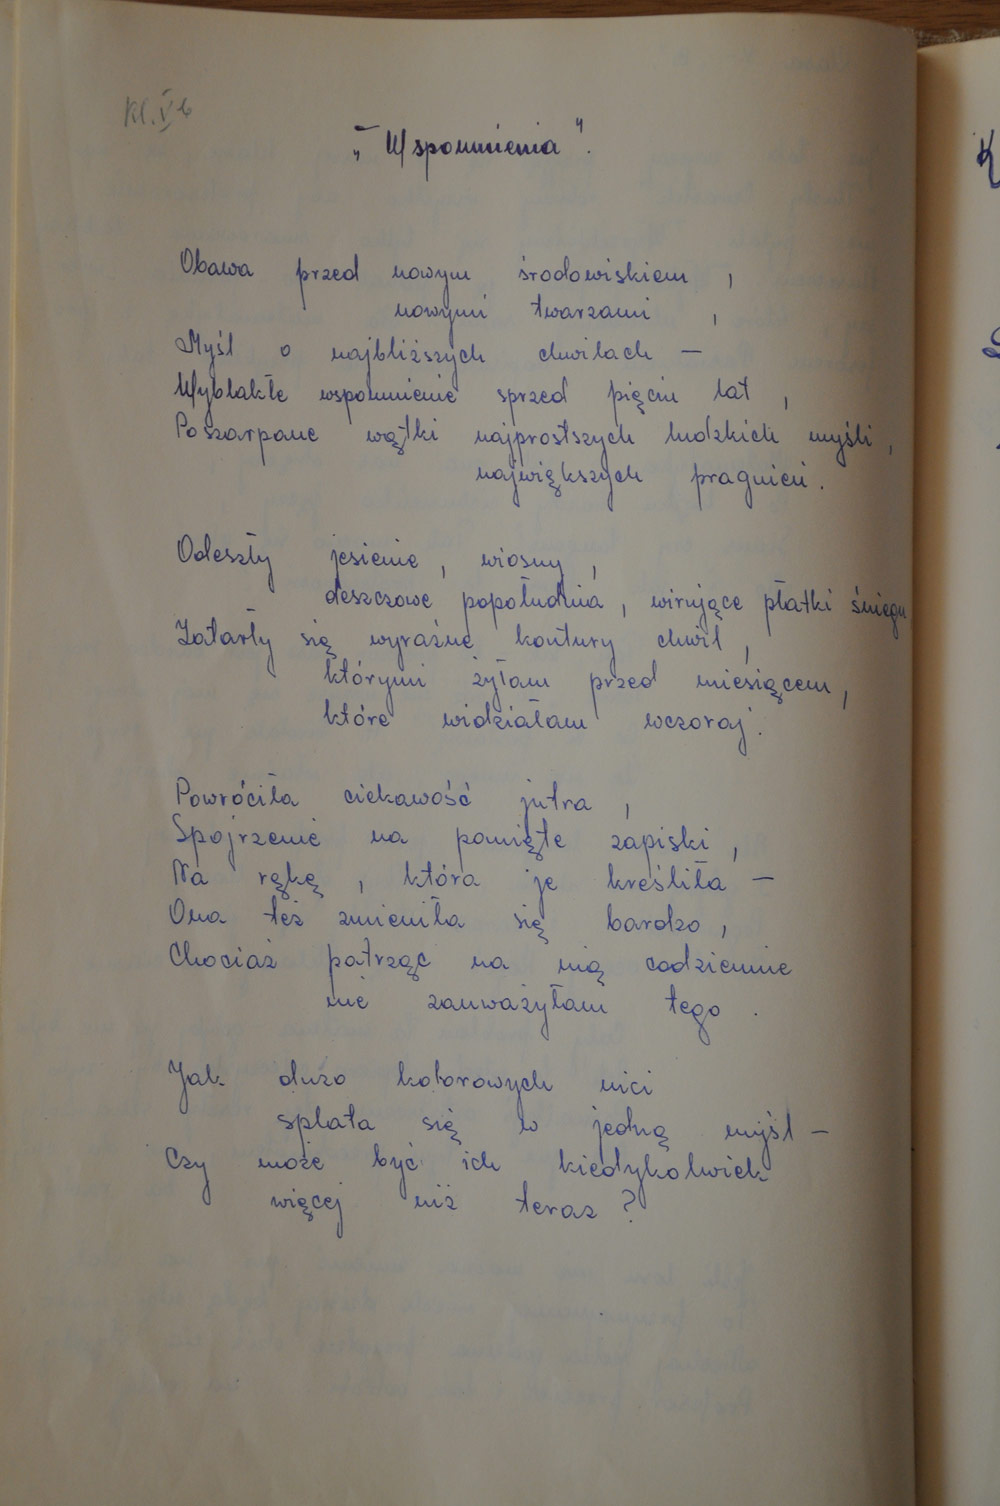 Kl. V b
„Wspomnienia".
Obawa przed nowym środowiskiem,
nowymi twarzami,
Myśl o najbliższych chwilach —
Wyblakłe wspomnienie sprzed pięciu lat,
Poszarpane wątki najprostszych ludzkich myśli,
największych pragnień.
Odeszły jesienie, wiosny,
deszczowe popołudnia, wirujące płatki śniegu
Zatarły się wyraźne kontury chwil,
którymi żyłam przed miesiącem,
które widziałam wczoraj.
Powróciła ciekawość jutra,
Spojrzenie na pomięte zapiski,
Na rękę, która je kreśliła —
Ona też zmieniła się bardzo,
Chociaż patrząc na nią codziennie
nie zauważyłam tego.
Jak dużo kolorowych nici
splata się w jedną myśl —
Czy może być ich kiedykolwiek
więcej niż teraz?